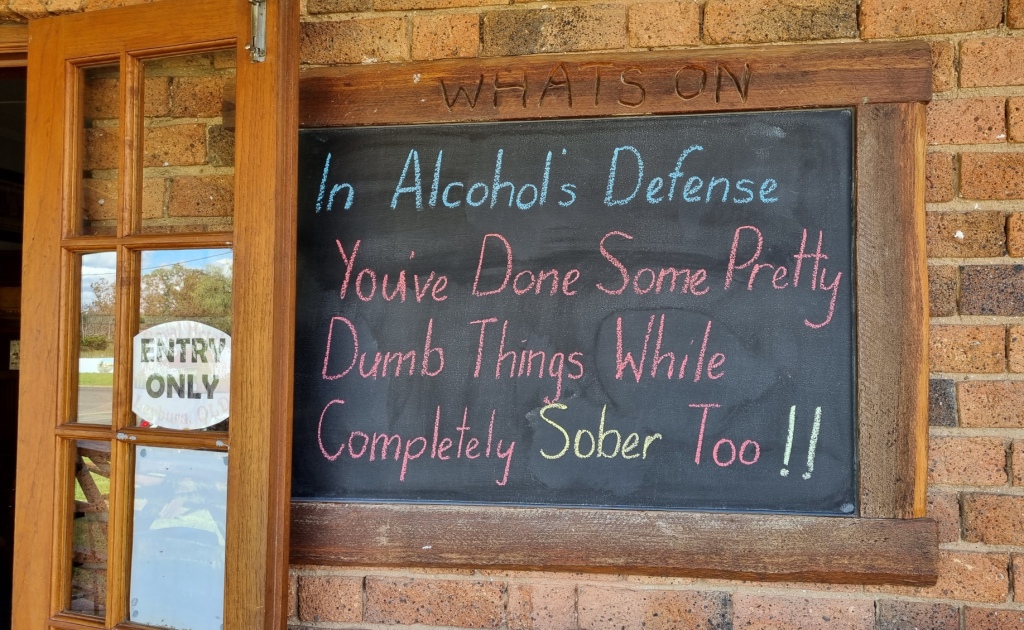 WHATS ON
In Alcohol's Defense
You've Done Some Pretty
Dumb Things While
Completely Sober Too !!
ENTRY
ONLY